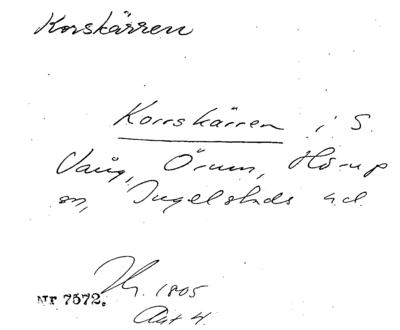 Korskärren
Korrskärren i S.
Vång, Örum, Hörup
sn, Ingelstads hd.
Nr 7572. 1805
Akt 4.